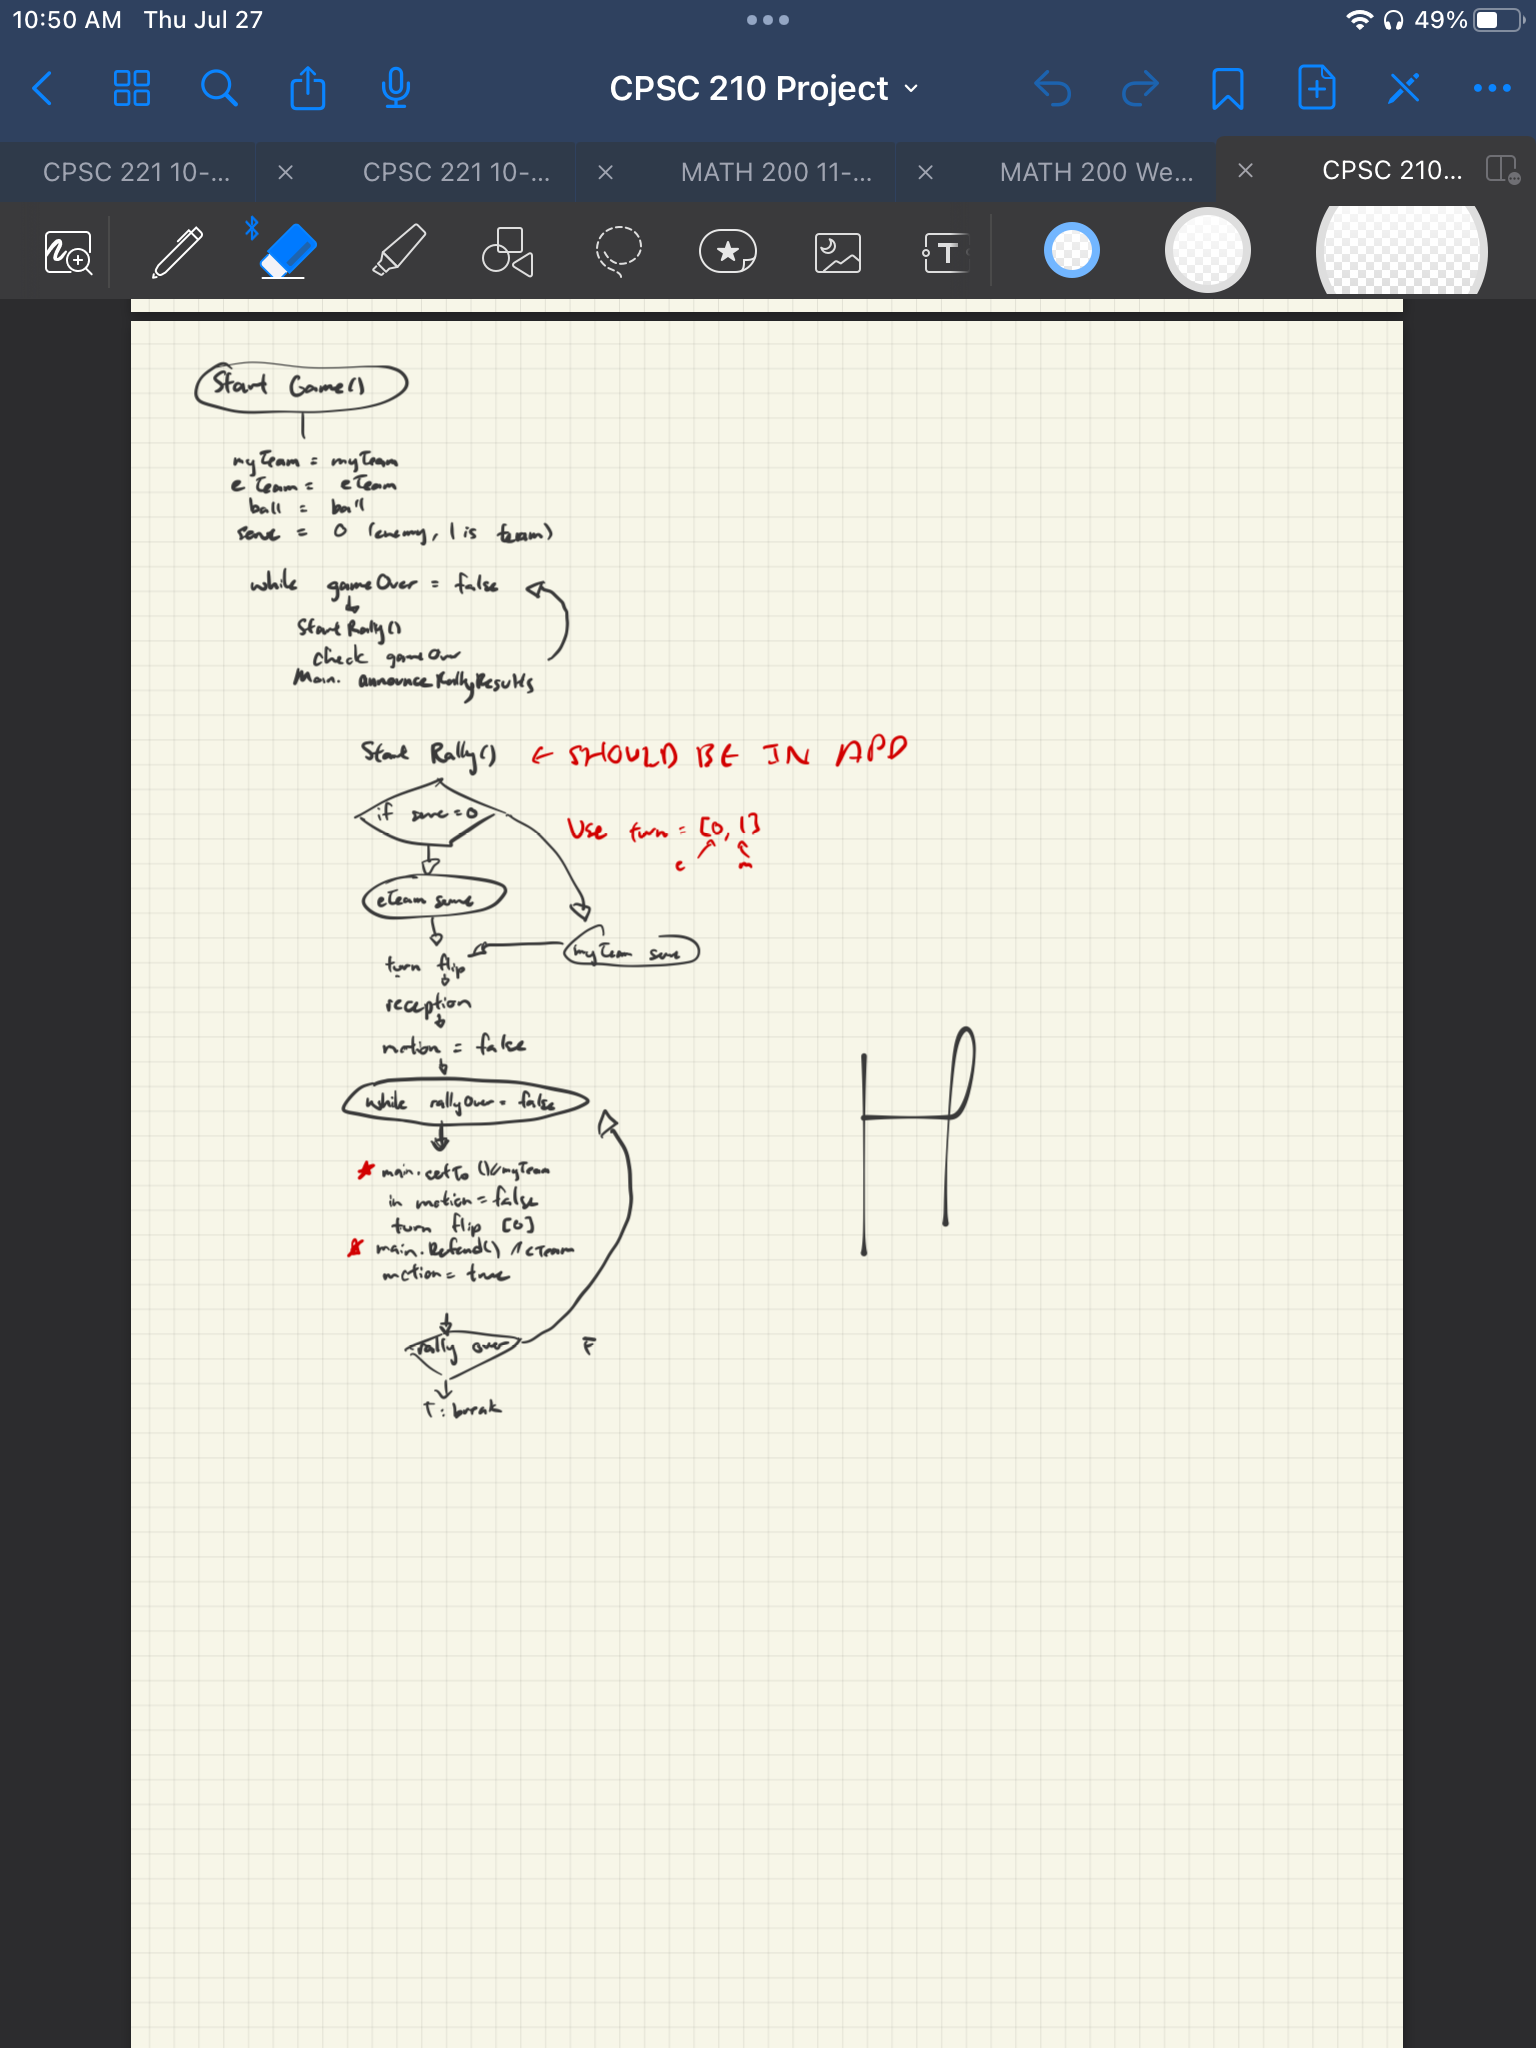 10:50 AM Thu Jul 27
49%
CPSC 210 Project
CPSC 221 10-...
CPSC 221 10-...
MATH 200 11-...
MATH 200 We...
CPSC 210...
T
Start Game()
myTeam = myTeam
eTeam = eTeam
ball = ball
serve = 0 (enemy, 1 is team)
while gameOver = false
StartRally()
check gameOver
Main. announceRallyResults
Start Rally() ← SHOULD BE IN APP
if serve = 0
Use turn = [0, 1]
e m
eTeam serve
myTeam serve
turn flip
reception
motion = false
while rallyOver = false
main.setTo () myTeam
in motion = false
turn flip [0]
main.Defend() eTeam
motion = true
rally over
F
T: break
H